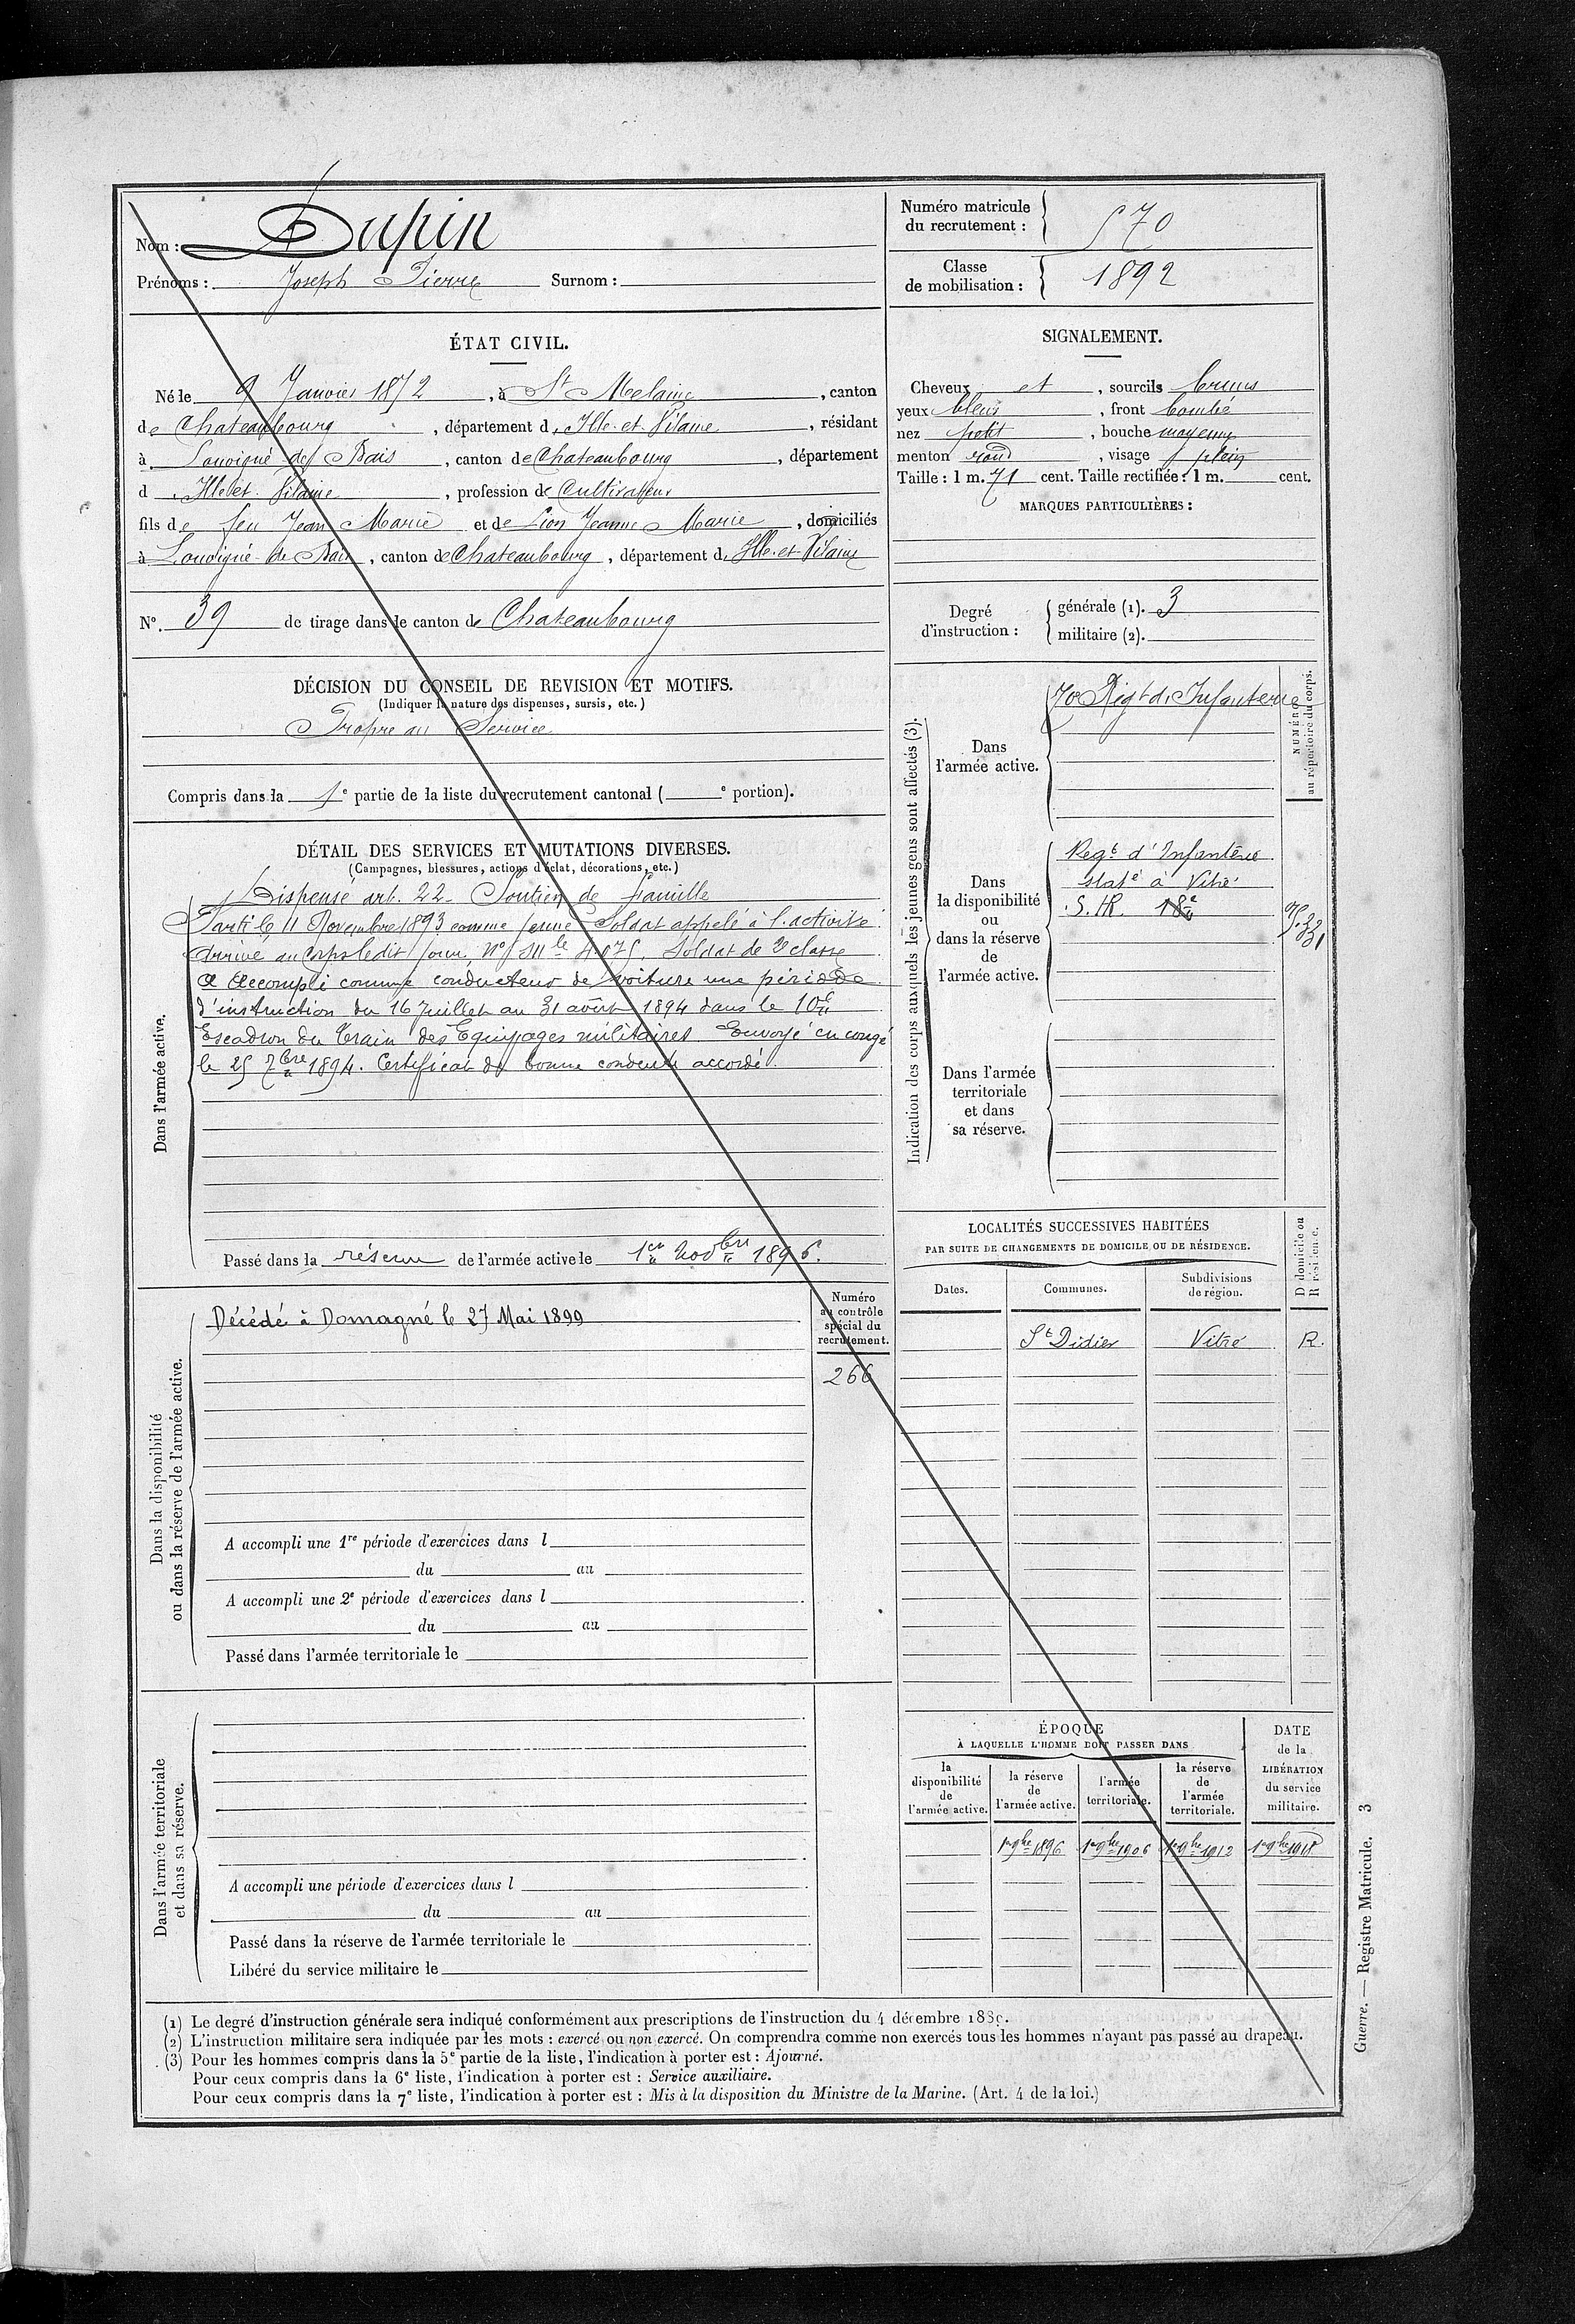 Nom : Dupin
Prénoms : Joseph Pierre Surnom :
Numéro matricule du recrutement : 570
Classe de mobilisation : 1892
ÉTAT CIVIL.
Né le 9 Janvier 1872, à St Melaine, canton
de Chateaubourg, département d'Ille-et-Vilaine, résidant
à Louvigné de Bais, canton de Chateaubourg, département
d'Ille et Vilaine, profession de Cultivateur
fils de feu Jean Marie et de Lion Jeanne Marie, domiciliés
à Louvigné de Bais, canton de Chateaubourg, département d'Ille-et-Vilaine
No. 39 de tirage dans le canton de Chateaubourg
SIGNALEMENT.
Cheveux et, sourcils bruns
yeux bleus, front bombé
nez petit, bouche moyenne
menton rond, visage plein
Taille : 1 m. 71 cent. Taille rectifiée : 1 m. cent.
MARQUES PARTICULIÈRES :
Degré d'instruction : générale (1). 3
militaire (2).
DÉCISION DU CONSEIL DE REVISION ET MOTIFS.
(Indiquer la nature des dispenses, sursis, etc.)
Propre au Service
Compris dans la 1e partie de la liste du recrutement cantonal ( e portion).
DÉTAIL DES SERVICES ET MUTATIONS DIVERSES.
(Campagnes, blessures, actions d'éclat, décorations, etc.)
Dans l'armée active.
Dispensé art. 22. Soutien de famille
Parti le 11 Novembre 1893 comme jeune Soldat appelé à l'activité
Arrivé au Corps ledit jour, No Mle 4075. Soldat de 2e classe
A Accompli comme conducteur de voiture une période
d'instruction du 16 Juillet au 31 août 1894 dans le 10e
Escadron du Train des Equipages militaires. Envoyé en congé
le 25 7bre 1894. Certificat de bonne conduite accordé.
Passé dans la réserve de l'armée active le 1er Novbre 1896.
Indication des corps auxquels les jeunes gens sont affectés (3).
NUMÉRO au répertoire du corps.
Dans l'armée active.
70 Régt d'Infanterie
Dans la disponibilité ou dans la réserve de l'armée active.
Régt d'Infanterie
staté à Vitré
S. HR. 18e
Dans l'armée territoriale et dans sa réserve.
Dans la disponibilité ou dans la réserve de l'armée active.
Décédé à Domagné le 27 Mai 1899
Numéro au contrôle spécial du recrutement.
266
A accompli une 1re période d'exercices dans l
du au
A accompli une 2e période d'exercices dans l
du au
Passé dans l'armée territoriale le
LOCALITÉS SUCCESSIVES HABITÉES
PAR SUITE DE CHANGEMENTS DE DOMICILE OU DE RÉSIDENCE.
Dates. Communes. Subdivisions de région. D domicile ou R résidence.
St Didier Vitré R.
Dans l'armée territoriale et dans sa réserve.
A accompli une période d'exercices dans l
du au
Passé dans la réserve de l'armée territoriale le
Libéré du service militaire le
ÉPOQUE
À LAQUELLE L'HOMME DOIT PASSER DANS
la disponibilité de l'armée active. la réserve de l'armée active. l'armée territoriale. la réserve de l'armée territoriale.
DATE de la LIBÉRATION du service militaire.
1er 9bre 1896 1er 9bre 1906 1er 9bre 1912 1er 9bre 1918
(1) Le degré d'instruction générale sera indiqué conformément aux prescriptions de l'instruction du 4 décembre 1889.
(2) L'instruction militaire sera indiquée par les mots : exercé ou non exercé. On comprendra comme non exercés tous les hommes n'ayant pas passé au drapeau.
(3) Pour les hommes compris dans la 5e partie de la liste, l'indication à porter est : Ajourné.
Pour ceux compris dans la 6e liste, l'indication à porter est : Service auxiliaire.
Pour ceux compris dans la 7e liste, l'indication à porter est : Mis à la disposition du Ministre de la Marine. (Art. 4 de la loi.)
Guerre. — Registre Matricule. 3